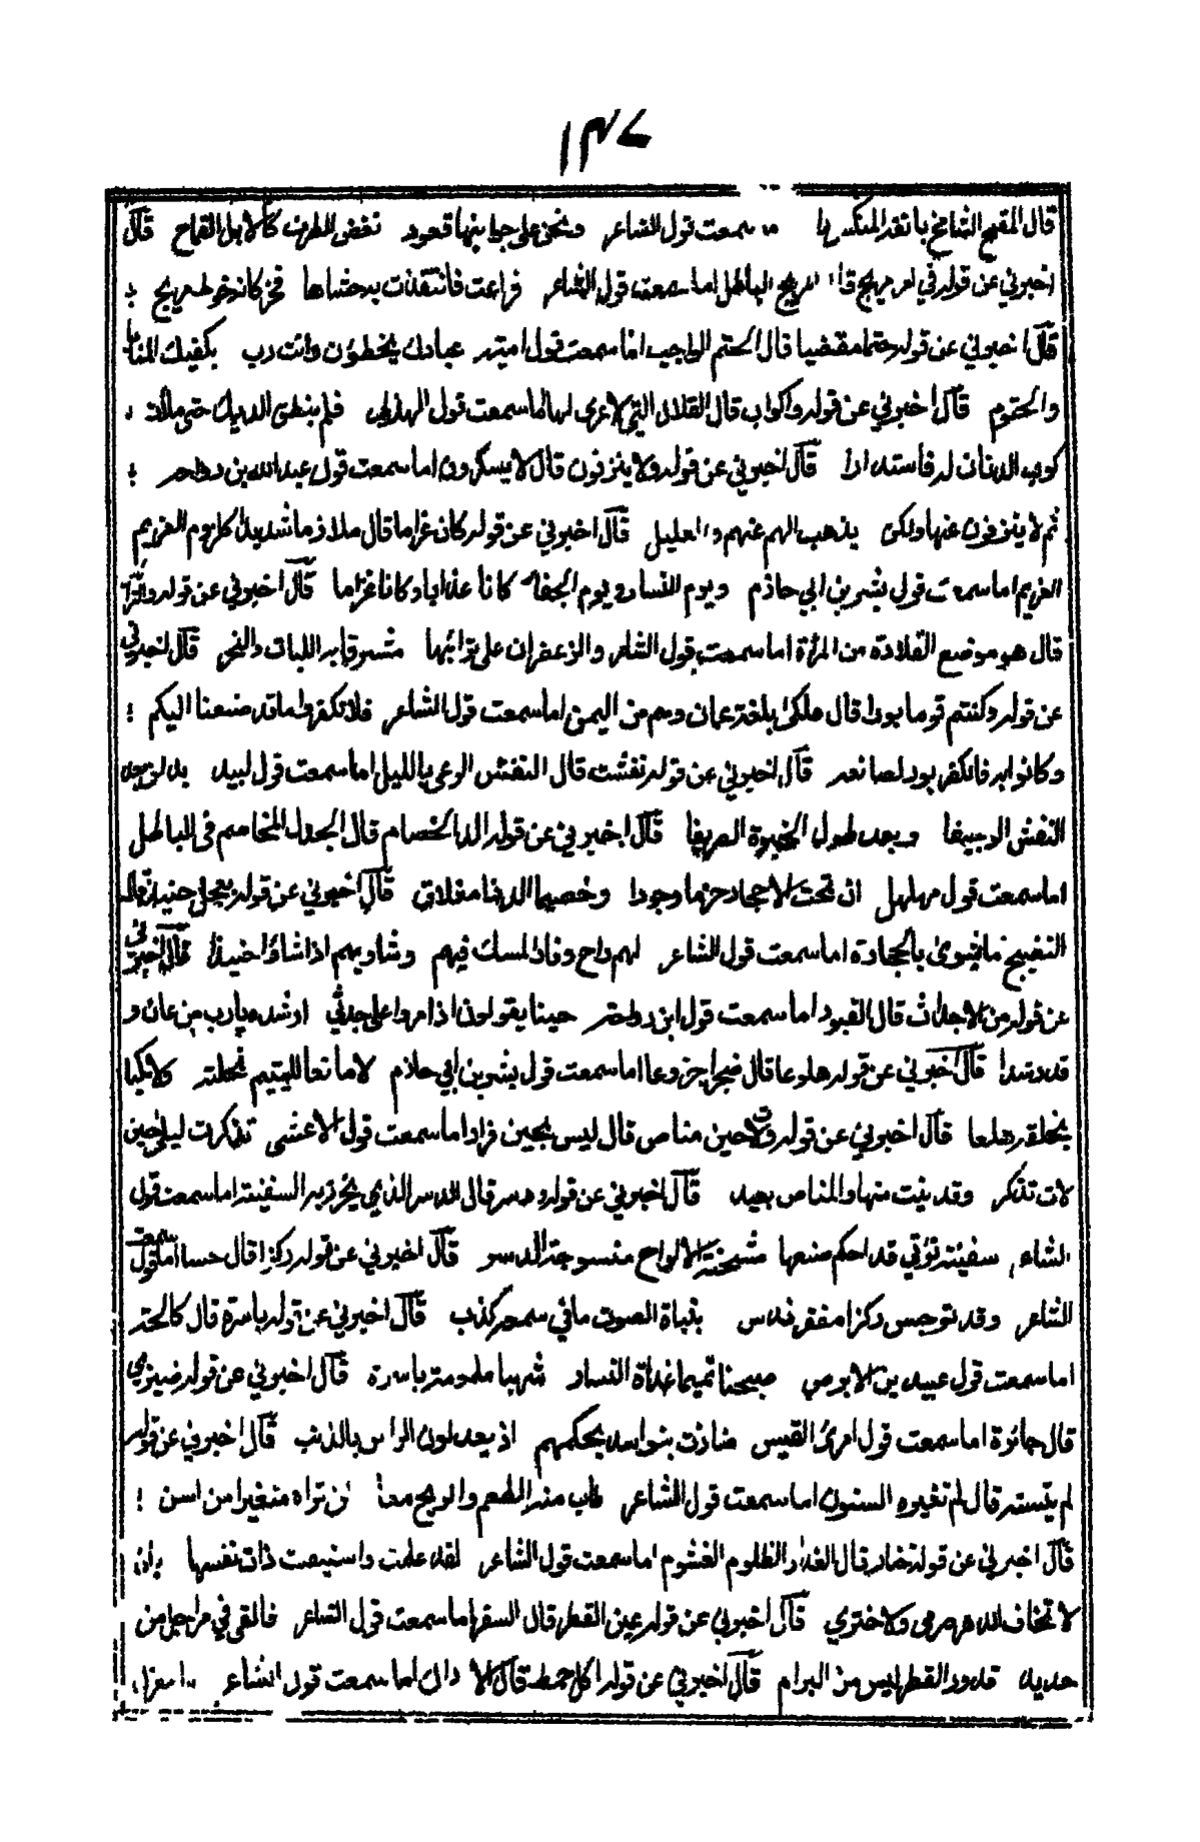 ١٣٧
قال المقمح الشامخ بانفه المنكس اما سمعت قول الشاعر ونحن على جوانبها قعود نغض الطرف كالابل القماح قال
اخبرني عن قوله في امر مريج قال المريج الباطل اما سمعت قول الشاعر فراعت فانتقذت به حشاها فخر كانه خوط مريج
قال اخبرني عن قوله حتما مقضيا قال الحتم الواجب اما سمعت قول امية عبادك يخطؤن وانت رب بكفيك المنايا
والحتوم قال اخبرني عن قوله واكواب قال القلال التي لا عرى لها اما سمعت قول الهذلي فلم ينطق الديك حتى ملأت
كوب الدنان له فاستدارا قال اخبرني عن قوله ولا ينزفون قال لا يسكرون اما سمعت قول عبد الله بن رواحه
ثم لا ينزفون عنها ولكن يذهب الهم عنهم والغليل قال اخبرني عن قوله كان غراما قال ملازما شديدا كلزوم الغريم
الغريم اما سمعت قول بشر بن ابي حازم ويوم النسار ويوم الجفار كانا عذابا وكانا غراما قال اخبرني عن قوله والترائب
قال هو موضع القلادة من المرأة اما سمعت قول الشاعر والزعفران على ترائبها مشرقا به اللبات والنحر قال اخبرني
عن قوله وكنتم قوما بورا قال هلكى بلغة عمان وهم من اليمن اما سمعت قول الشاعر فلا تكفروا ما قد صنعنا اليكم
وكانوا به فالكفر بور لصانعه قال اخبرني عن قوله نفشت قال النفش الرعي بالليل اما سمعت قول لبيد بدلن بعد
النفش الوجيفا وبعد طول الخبرة الصريفا قال اخبرني عن قوله الد الخصام قال الجدل المخاصم في الباطل
اما سمعت قول مهلهل ان تحت الاحجار حزما وجودا وخصيما الد ذا مغلاق قال اخبرني عن قوله بعجل حنيذ قال
النضيج ما يشوى بالحجارة اما سمعت قول الشاعر لهم راح وفار المسك فيهم وشاويهم اذا شاؤا حنيذا قال اخبرني
عن قوله من الاجداث قال القبور اما سمعت قول ابن رواحه حينا يقولون اذا مروا على جدثي ارشده يا رب من عان و
قد رشدا قال اخبرني عن قوله هلوعا قال ضجرا جزوعا اما سمعت قول بشر بن ابي حازم لا مانعا لليتيم نحلته ولا مكبا
بخلقه هلعا قال اخبرني عن قوله ولات حين مناص قال ليس بحين فرار اما سمعت قول الاعشى تذكرت ليلى حين
لات تذكر وقد بنت منها والمناص بعيد قال اخبرني عن قوله ودسر قال الدسر الذي يخرز به السفينة اما سمعت قول
الشاعر سفينة نوتي قد احكم صنعها مثخنة الالواح منسوجة الدسر قال اخبرني عن قوله ركزا قال حسا اما سمعت قول
الشاعر وقد توجس ركزا مقفر ندس بنباة الصوت ما في سمعه كذب قال اخبرني عن قوله باسرة قال كالحة
اما سمعت قول عبيد بن الابرص صبحنا تميما غداة النسار شهبا ملمومة باسرة قال اخبرني عن قوله ضيزى
قال جائرة اما سمعت قول امرئ القيس ضازت بنو اسد بحكمهم اذ يعدلون الراس بالذنب قال اخبرني عن قوله
لم يتسنه قال لم تغيره السنون اما سمعت قول الشاعر طاب منه الطعم والريح معا لن تراه متغيرا من اسن
قال اخبرني عن قوله ختار قال الغدار الظلوم الغشوم اما سمعت قول الشاعر لقد علمت واستيقنت ذات نفسها بان
لا تخاف الدهر صرمى ولا ختري قال اخبرني عن قوله عين القطر قال الصفر اما سمعت قول الشاعر فالقى في مراجل من
حديد قدور القطر ليس من البرام قال اخبرني عن قوله اكل خمط قال الاراك اما سمعت قول الشاعر